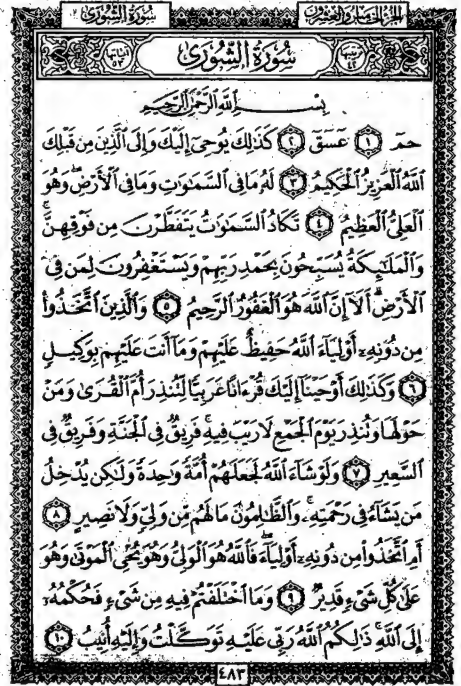 الجزء الخامس والعشرون سُورَةُ الشُّورَىٰ
ترتيبها ٤٢ سُورَةُ الشُّورَىٰ آياتها ٥٣
بِسْمِ اللَّهِ الرَّحْمَٰنِ الرَّحِيمِ
حمٓ ١ عٓسٓقٓ ٢ كَذَٰلِكَ يُوحِىٓ إِلَيْكَ وَإِلَى ٱلَّذِينَ مِن قَبْلِكَ
ٱللَّهُ ٱلْعَزِيزُ ٱلْحَكِيمُ ٣ لَهُۥ مَا فِى ٱلسَّمَٰوَٰتِ وَمَا فِى ٱلْأَرْضِ ۖ وَهُوَ
ٱلْعَلِىُّ ٱلْعَظِيمُ ٤ تَكَادُ ٱلسَّمَٰوَٰتُ يَتَفَطَّرْنَ مِن فَوْقِهِنَّ ۚ
وَٱلْمَلَٰٓئِكَةُ يُسَبِّحُونَ بِحَمْدِ رَبِّهِمْ وَيَسْتَغْفِرُونَ لِمَن فِى
ٱلْأَرْضِ ۗ أَلَآ إِنَّ ٱللَّهَ هُوَ ٱلْغَفُورُ ٱلرَّحِيمُ ٥ وَٱلَّذِينَ ٱتَّخَذُوا۟
مِن دُونِهِۦٓ أَوْلِيَآءَ ٱللَّهُ حَفِيظٌ عَلَيْهِمْ وَمَآ أَنتَ عَلَيْهِم بِوَكِيلٍ
٦ وَكَذَٰلِكَ أَوْحَيْنَآ إِلَيْكَ قُرْءَانًا عَرَبِيًّا لِّتُنذِرَ أُمَّ ٱلْقُرَىٰ وَمَنْ
حَوْلَهَا وَتُنذِرَ يَوْمَ ٱلْجَمْعِ لَا رَيْبَ فِيهِ ۚ فَرِيقٌ فِى ٱلْجَنَّةِ وَفَرِيقٌ فِى
ٱلسَّعِيرِ ٧ وَلَوْ شَآءَ ٱللَّهُ لَجَعَلَهُمْ أُمَّةً وَٰحِدَةً وَلَٰكِن يُدْخِلُ
مَن يَشَآءُ فِى رَحْمَتِهِۦ ۚ وَٱلظَّٰلِمُونَ مَا لَهُم مِّن وَلِىٍّ وَلَا نَصِيرٍ ٨
أَمِ ٱتَّخَذُوا۟ مِن دُونِهِۦٓ أَوْلِيَآءَ ۖ فَٱللَّهُ هُوَ ٱلْوَلِىُّ وَهُوَ يُحْىِ ٱلْمَوْتَىٰ وَهُوَ
عَلَىٰ كُلِّ شَىْءٍ قَدِيرٌ ٩ وَمَا ٱخْتَلَفْتُمْ فِيهِ مِن شَىْءٍ فَحُكْمُهُۥٓ
إِلَى ٱللَّهِ ۚ ذَٰلِكُمُ ٱللَّهُ رَبِّى عَلَيْهِ تَوَكَّلْتُ وَإِلَيْهِ أُنِيبُ ١٠
٤٨٣